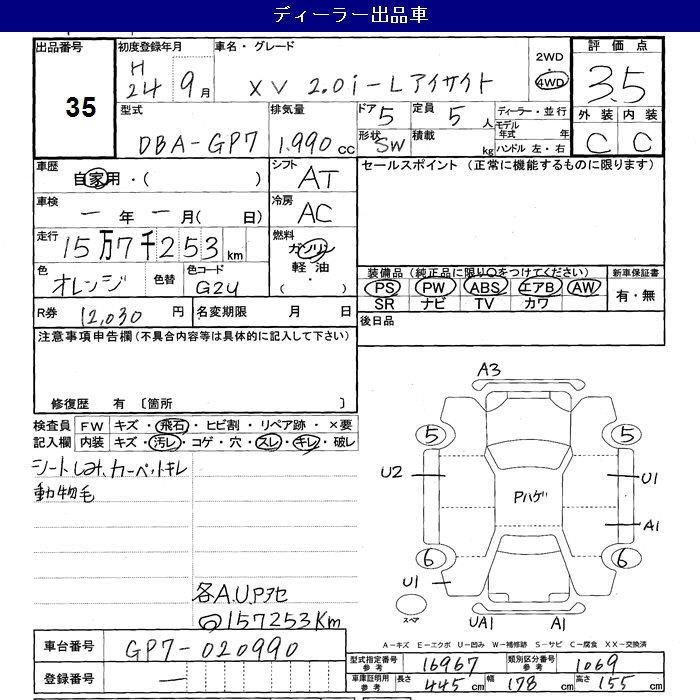 ディーラー出品車
出品番号 35
初度登録年月 H24 9月
車名・グレード XV 2.0i-Lアイサイト
2WD
4WD
評価点 3.5
型式 DBA-GP7
排気量 1.990 cc
ドア 5
定員 5 人
形状 SW
積載 kg
ディーラー・並行
モデル年式 年
ハンドル 左・右
外装 内装
C C
車歴 自家用・( )
シフト AT
セールスポイント (正常に機能するものに限ります)
車検 一 年 一 月( 日)
冷房 AC
走行 15万7千253 km
燃料 ガソリン
軽油
( ・ )
色 オレンジ
色替
色コード G2U
装備品 (純正品に限り○をつけてください)
新車保証書
PS PW ABS エアB AW
有・無
SR ナビ TV カワ
R券 12,030 円
名変期限 月 日
後日品
注意事項申告欄 (不具合内容等は具体的に記入して下さい)
修復歴 有 〔箇所 〕
検査員記入欄
FW キズ・飛石・ヒビ割・リペア跡・×要
内装 キズ・汚レ・コゲ・穴・スレ・キレ・破レ
シートしみ、カーペットキレ
動物毛
各A.U.Pアセ
157253Km
A3
5 5
U2 U1
Pハゲ
A1
6 6
U1
スペア
UA1 A1
A－キズ E－エクボ U－凹み W－補修跡 S－サビ C－腐食 XX－交換済
車台番号 GP7-020990
登録番号 一
型式指定番号 参考 16967
類別区分番号 参考 1069
車庫証明用 参考 長さ 445 cm 幅 178 cm 高さ 155 cm